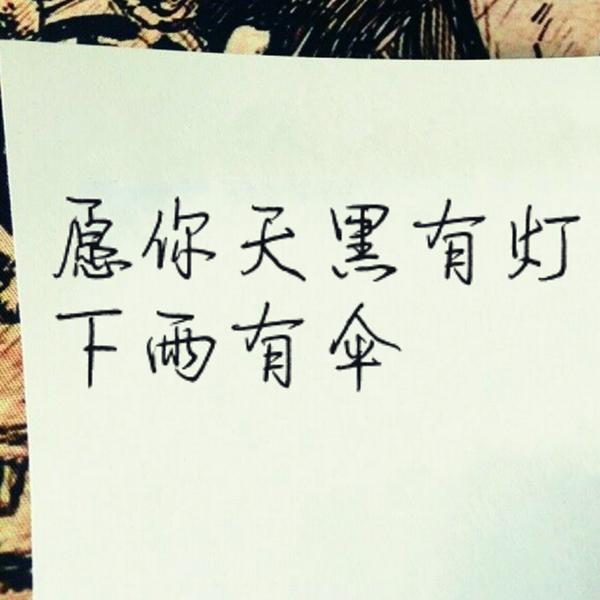 愿你天黑有灯
下雨有伞